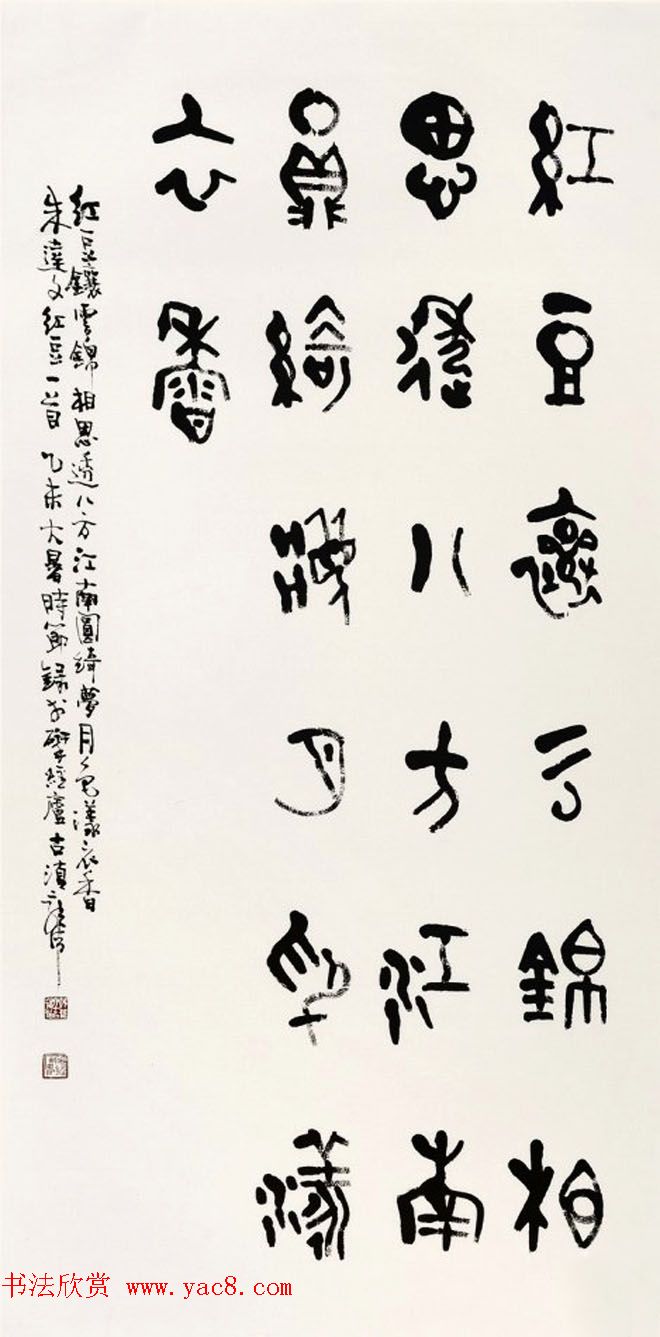 紅豆鑲雲錦相
思透八方江南
圓綺夢月色漾
衣香
紅豆鑲雲錦相思透八方江南圓綺夢月色漾衣香
朱達文紅豆一首乙未大暑時節錄於聖經廬古滇
书法欣赏 www.yac8.com